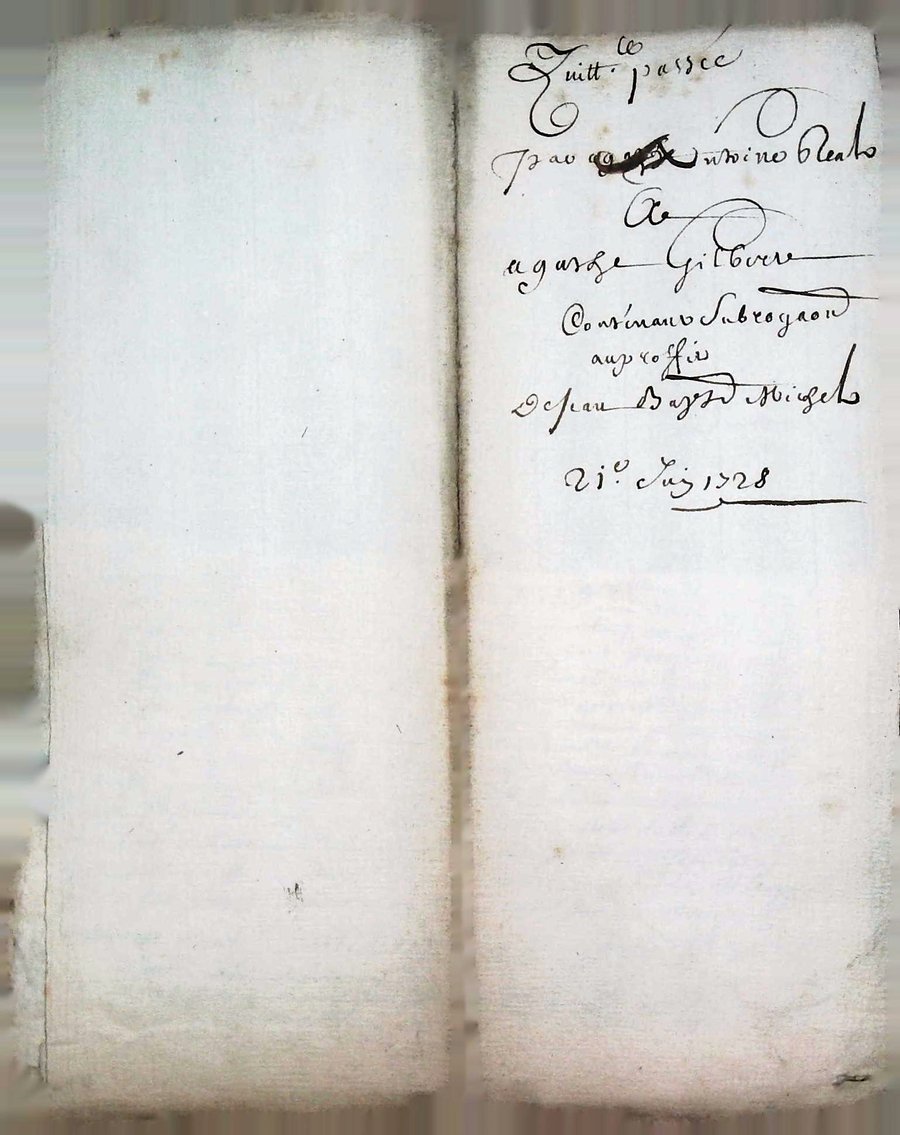 Quitt.ce passée
par Antoine Réal
A
agathe Gilberte
Contenant Subrogaon
au proffit
De Jean Bapt Michel
21.e Juin 1728